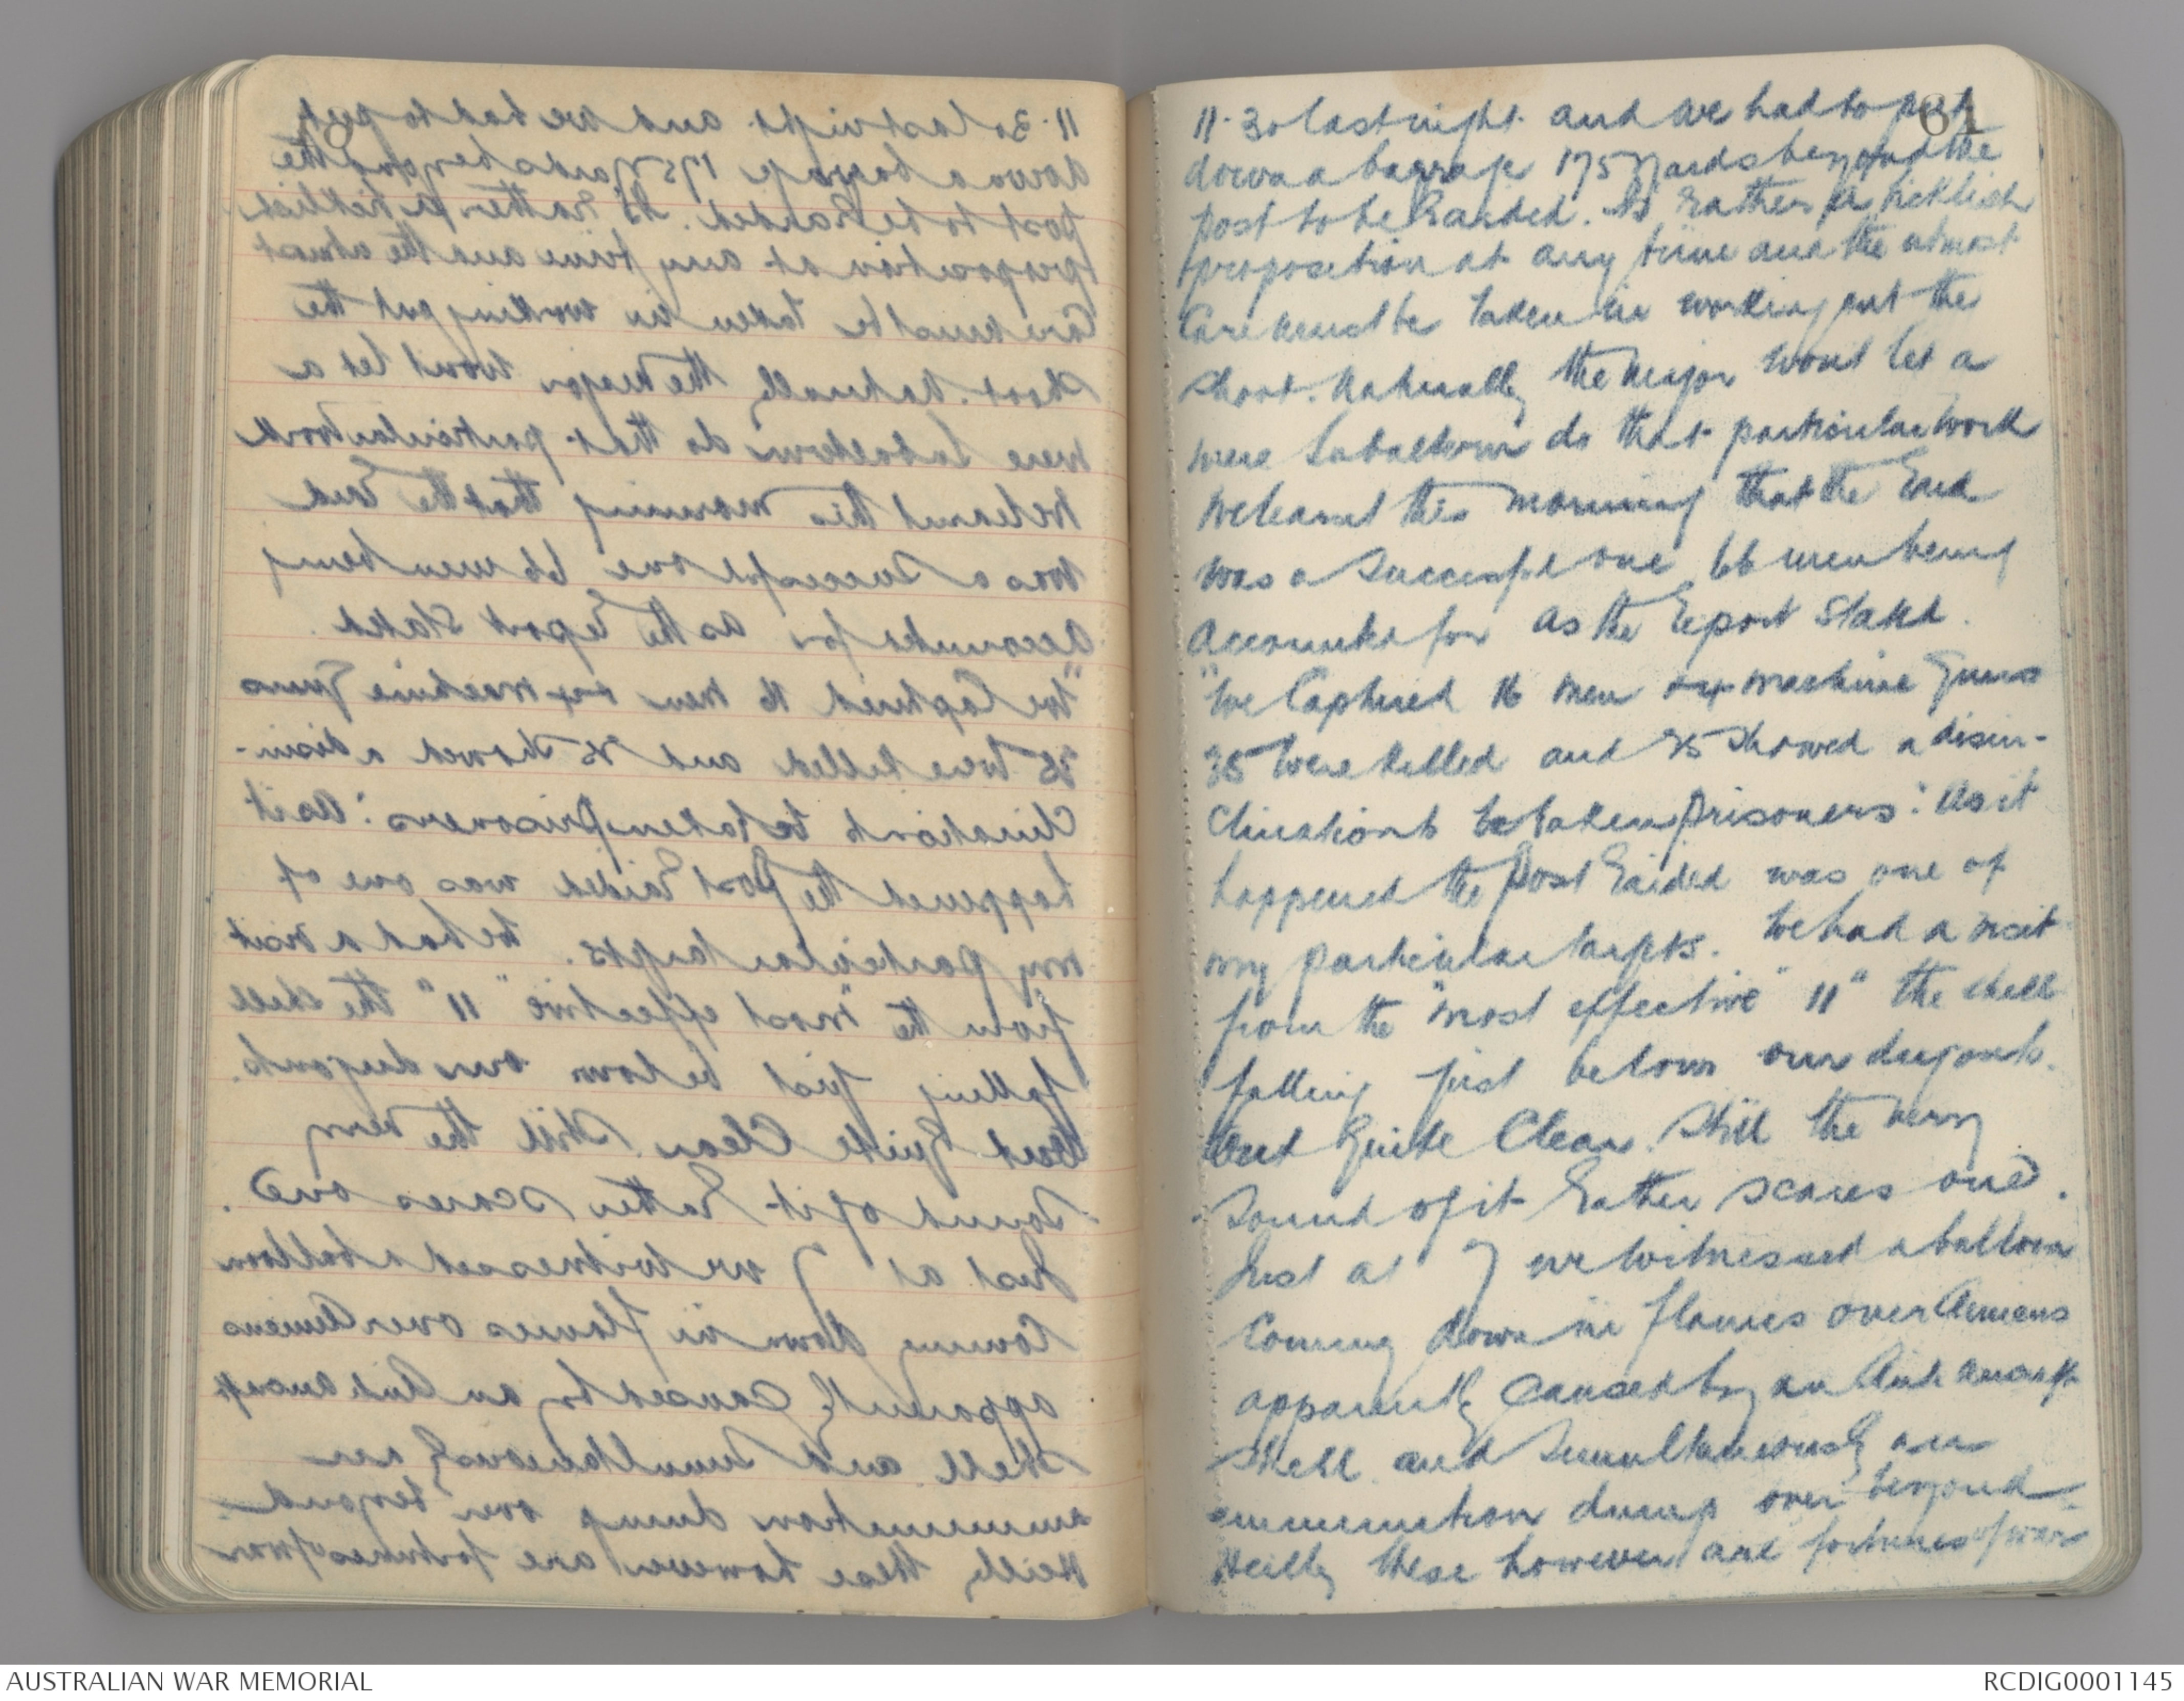 61
11.30 last night and we had to put
down a barrage 175 yards beyond the
post to be Raided. Its Rather a ticklish
proposition at any time and the utmost
Care must be taken in working out the
shoot. Naturally the Major wont let a
mere Subaltern do that particular work
We learnt this morning that the Raid
was a Successful one 66 men being
accounted for as the Report Stated.
"We Captured 16 men & 4 machine Guns
35 Were killed and 15 Showed a disin-
clination to be taken prisoners": As it
happened the Post Raided was one of
my particular targets. We had a visit
from the "most effective" 11" the shell
falling just below our dugouts.
but Quite Clear. Still the very
Sound of it Rather scares one.
Just at 7 we witnessed a balloon
Coming down in flames over Amiens
apparently Caused by an Anti Aircraft
Shell and Simultaneously an
ammunition dump over beyond
Heilly these however are fortunes of war
AUSTRALIAN WAR MEMORIAL
RCDIG0001145